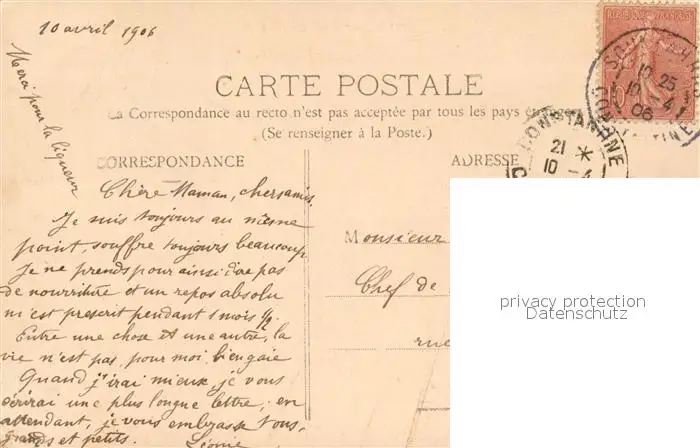 10 avril 1906
Merci pour la liqueur
REPUBLIQUE FRANÇAISE
10
SOUK-AHRAS
12 25
10 -4
06
CONSTANTINE
CARTE POSTALE
La Correspondance au recto n'est pas acceptée par tous les pays
(Se renseigner à la Poste.)
CONSTANTINE
21 *
10 -4
CORRESPONDANCE
ADRESSE
Chère Maman, chers amis,
Je suis toujours au même
point, souffre toujours beaucoup
Je ne prends pour ainsi dire pas
de nourriture et un repos absolu
m'est prescrit pendant 1 mois 1/2.
Entre une chose et une autre, la
vie n'est pas, pour moi, bien gaie
Quand j'irai mieux, je vous
écrirai une plus longue lettre; en
attendant, je vous embrasse tous,
grands et petits. Léonie
Monsieur
Chef de
rue
privacy protection
Datenschutz